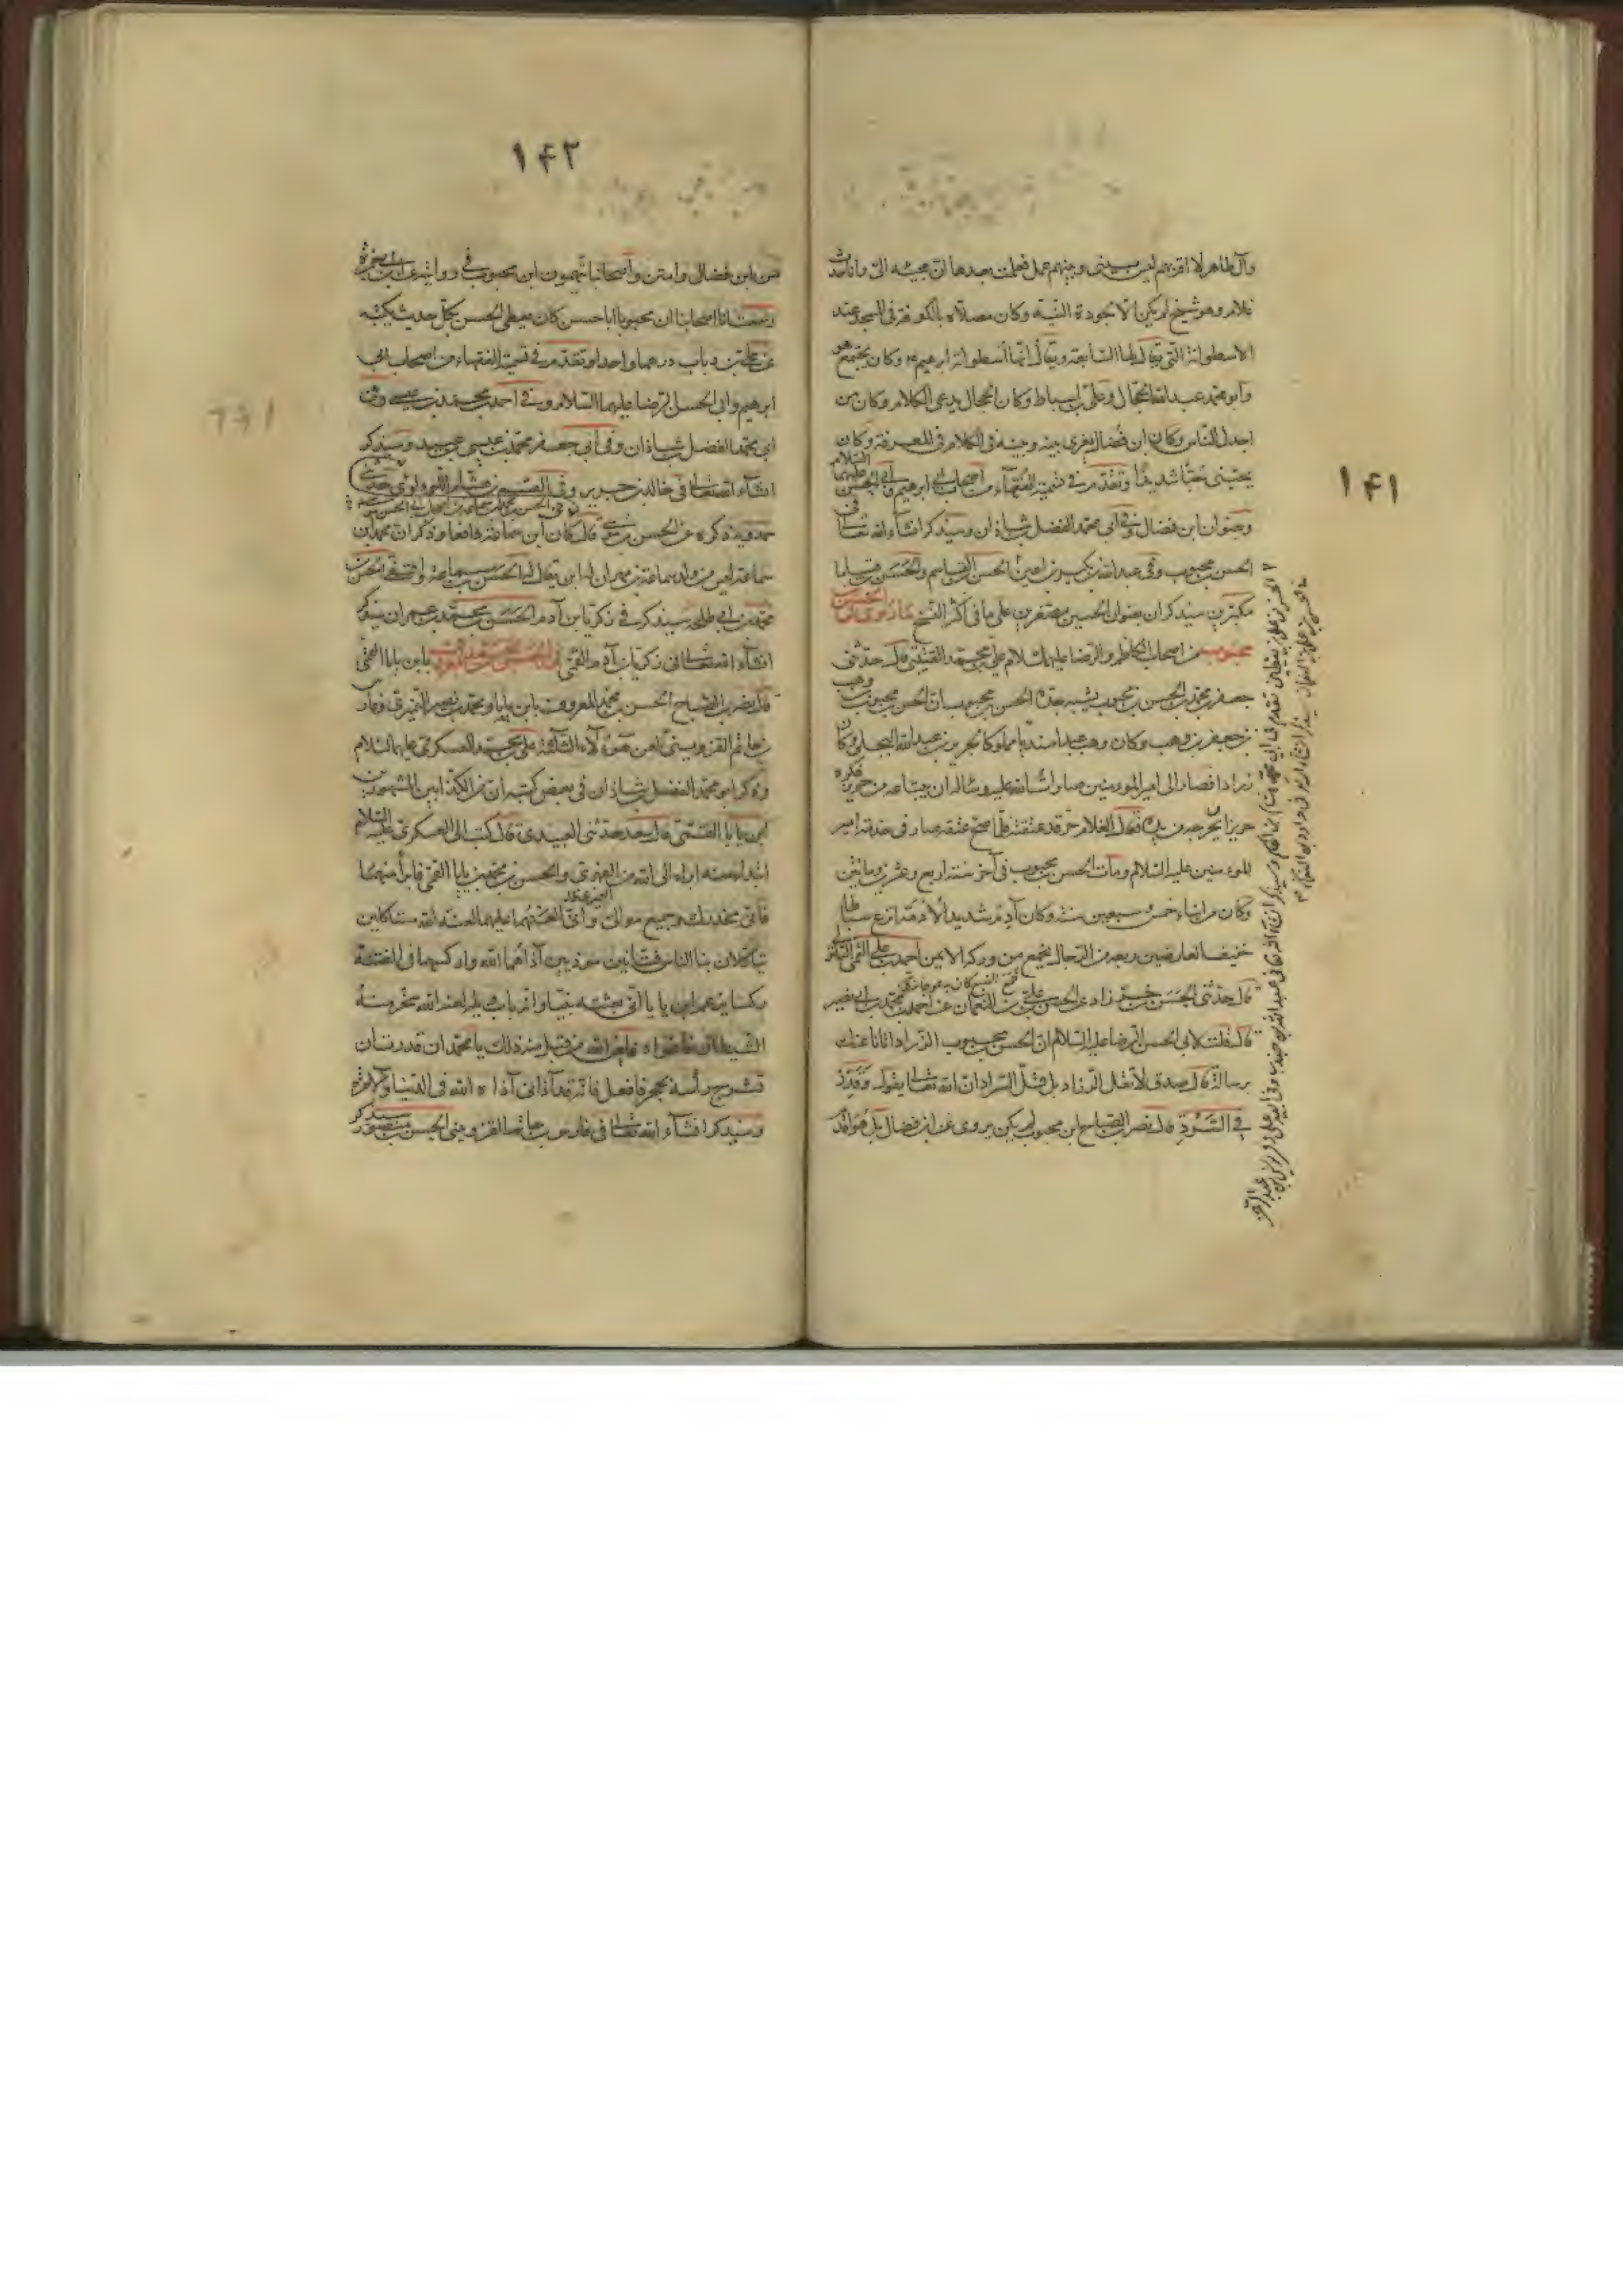 ١۴١
وآل طاهر لا اقربهم ليس بينى وبينهم عمل فعلمت بعدها ان مجيئه الىّ وانا حدث
غلام وهو شيخ لم يكن الا لجودة النية وكان مصلاه بالكوفة فى المسجد عند
الاسطوانة التى يقال لها السابعة ويقال لها اسطوانة ابرهيم ع وكان يجتمع هو
وابو محمد عبد الله الحجال وعلى بن اسباط وكان الحجال يدعى الكلام وكان من
اجدل الناس وكان ابن فضال يغرى بينه وبينه فى الكلام فى المعرفة وكان
يحبنى حبا شديدا وتقدم فى تسمية الفقهاء من اصحاب ابى ابرهيم وابى الحسن عليهما السلام
وصفوان ابن فضال وفى ابى محمد الفضل بن شاذان وسيذكر انشاء الله تعالى فى
الحسن بن محبوب وفى عبد الله بن بكير بن اعين الحسن بن القاسم والحسن بن قياما
سيذكران بعنوان الحسين مصغرين على ما فى اكثر النسخ ما روى فى الحسن بن
محبوب من اصحاب الكاظم والرضا عليهما السلام على بن محمد القتيبى قال حدثنى
جعفر بن محمد بن الحسن بن محبوب نسبة جده الحسن بن محبوب ان الحسن بن محبوب بن وهب
بن جعفر بن وهب وكان وهب عبدا سنديا مملوكا لجرير بن عبد الله البجلى وكان
زرادا فصار الى امير المؤمنين صلوات الله عليه وسأله ان يبتاعه من جرير فكره
جرير ان يخرجه من يده فقال الغلام حر قد عتقته فلما صح عتقه صار فى خدمة امير
المؤمنين عليه السلام ومات الحسن بن محبوب فى آخر سنة اربع وعشرين ومأتين
وكان من ابناء خمس وسبعين سنة وكان آدم شديد الادمة انزع سباطا
خفيف العارضين ربعة من الرجال يخمع من وركه الايمن احمد بن على القمى السلولى
قال حدثنى الحسن بن خرزاد عن الحسن بن على بن النعمان عن احمد بن محمد بن ابى نصر
قال قلت لابى الحسن الرضا عليه السلام ان الحسن بن محبوب الزراد اتانا عنك
برسالة قال صدق لا تقل الزراد بل قل السراد ان الله تعالى يقول وقدر
فى السرد قال نصر بن الصباح ابن محبوب لم يكن يروى عن ابن فضال بل هو اقدم
١۴٢
من ابن فضال وامتن واصحابنا يتهمون ابن محبوب فى روايته عن ابن ابى حمزة
وسمعت اصحابنا ان محبوبا ابا حسن كان يعطى الحسن بكل حديث يكتبه
عن على بن رياب درهما واحدا وتقدم فى تسمية الفقهاء من اصحاب ابى
ابرهيم وابى الحسن الرضا عليهما السلام وفى احمد بن محمد بن عيسى وفى
ابى محمد الفضل بن شاذان وفى ابى جعفر محمد بن عيسى بن عبيد وسيذكر
انشاء الله تعالى فى خالد بن جرير وفى القسم بن هشام اللؤلؤى
حمدويه ذكره عن الحسن بن موسى قال كان ابن سماعة واقفا وذكر ان محمد بن
سماعة ليس من ولد سماعة بن مهران له ابن يقال له الحسن بن سماعة واقفى الحسن
محمد بن ابى طلحة سيذكر فى زكريا بن آدم الحسن بن محمد بن عمران سيذكر
انشاء الله تعالى فى زكريا بن آدم القمى فى الحسن بن محمد المعروف بابن بابا القمى
قال نصر بن الصباح الحسن بن محمد المعروف بابن بابا ومحمد بن نصير النميرى وفارس
بن حاتم القزوينى لعن هؤلاء الثلاثة على بن محمد العسكرى عليهما السلام
وذكر ابو محمد الفضل بن شاذان فى بعض كتبه ان من الكذابين المشهورين
ابن بابا القمى قال سعد حدثنى العبيدى قال كتب الى العسكرى عليه السلام
ابتداء منه ابرأ الى الله من الفهرى والحسن بن محمد بن بابا القمى فابرأ منهما
فانى محذرك وجميع موالى وانى العنهما عليهما لعنة الله مستاكلين
يتاكلان بنا الناس فتانين موذيين آذاهما الله واركسهما فى الفتنة
ركسا يزعم ابن بابا انى بعثته نبيا وانه باب عليه لعنة الله سخر منه
الشيطان فاغواه فلعن الله من قبل منه ذلك يا محمد ان قدرت ان
تشدخ رأسه بحجر فافعل فانه قد آذانى آذاه الله فى الدنيا والآخرة
وسيذكر انشاء الله تعالى فى فارس بن حاتم القزوينى الحسن بن منصور سيذكر